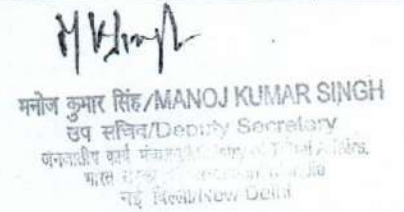 मनोज कुमार सिंह/MANOJ KUMAR SINGH
उप सचिव/Deputy Secretary
जनजातीय कार्य मंत्रालय/Ministry of Tribal Affairs,
भारत
नई दिल्ली/New Delhi